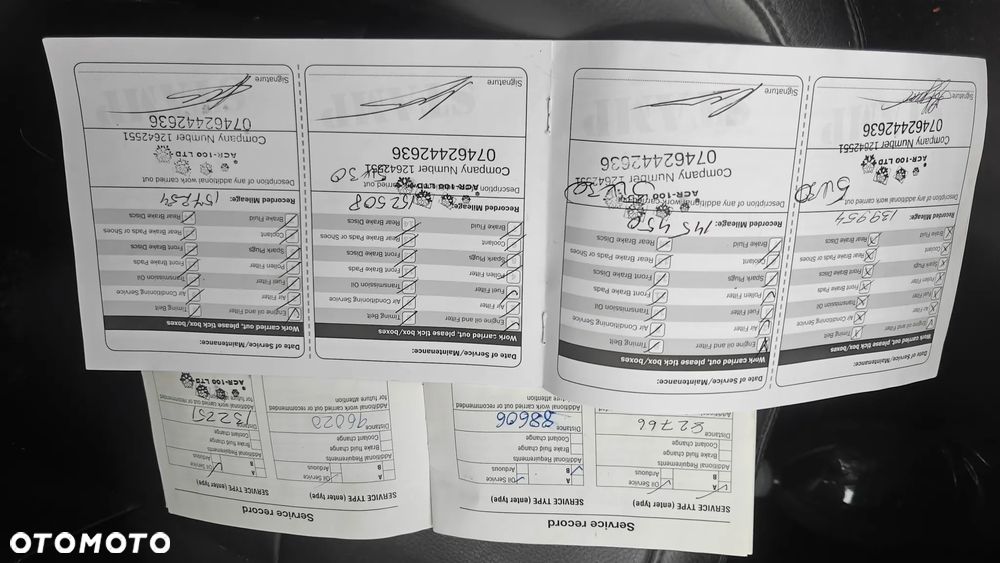 Service record
SERVICE TYPE (enter type)
A
Oil Service
B
Arduous
Additional Requirements
Brake fluid change
Coolant change
Distance
82766
SERVICE TYPE (enter type)
A
Oil Service
B
Arduous
Additional Requirements
Brake fluid change
Coolant change
Distance
88606
Additional work carried out or recommended
for future attention
Service record
SERVICE TYPE (enter type)
A
Oil Service
B
Arduous
Additional Requirements
Brake fluid change
Coolant change
Distance
96020
Additional work carried out or recommended
for future attention
SERVICE TYPE (enter type)
A
Oil Service
B
Arduous
Additional Requirements
Brake fluid change
Coolant change
Distance
Additional work carried out or recommended
for future attention
ACR-100 LTD
Date of Service/Maintenance:
Work carried out, please tick box/boxes
Engine oil and Filter
Timing Belt
Air Filter
Air Conditioning Service
Fuel Filter
Transmission Oil
Pollen Filter
Front Brake Pads
Spark Plugs
Front Brake Discs
Coolant
Rear Brake Pads or Shoes
Brake Fluid
Rear Brake Discs
Recorded Mileage: 139954
Description of any additional work carried out
5W30
ACR-100 LTD
Company Number 12642551
07462442636
Signature
Date of Service/Maintenance:
Work carried out, please tick box/boxes
Engine oil and Filter
Timing Belt
Air Filter
Air Conditioning Service
Fuel Filter
Transmission Oil
Pollen Filter
Front Brake Pads
Spark Plugs
Front Brake Discs
Coolant
Rear Brake Pads or Shoes
Brake Fluid
Rear Brake Discs
Recorded Mileage: 145450
Description of any additional work carried out
ACR-100 LTD
5W30
Company Number 12642551
07462442636
Signature
Date of Service/Maintenance:
Work carried out, please tick box/boxes
Engine oil and Filter
Timing Belt
Air Filter
Air Conditioning Service
Fuel Filter
Transmission Oil
Pollen Filter
Front Brake Pads
Spark Plugs
Front Brake Discs
Coolant
Rear Brake Pads or Shoes
Brake Fluid
Rear Brake Discs
Recorded Mileage: 152508
Description of any additional work carried out
ACR-100 LTD
5W30
Company Number 12642551
07462442636
Signature
Date of Service/Maintenance:
Work carried out, please tick box/boxes
Engine oil and Filter
Timing Belt
Air Filter
Air Conditioning Service
Fuel Filter
Transmission Oil
Pollen Filter
Front Brake Pads
Spark Plugs
Front Brake Discs
Coolant
Rear Brake Pads or Shoes
Brake Fluid
Rear Brake Discs
Recorded Mileage:
Description of any additional work carried out
ACR-100 LTD
Company Number 12642551
07462442636
Signature
OTOMOTO